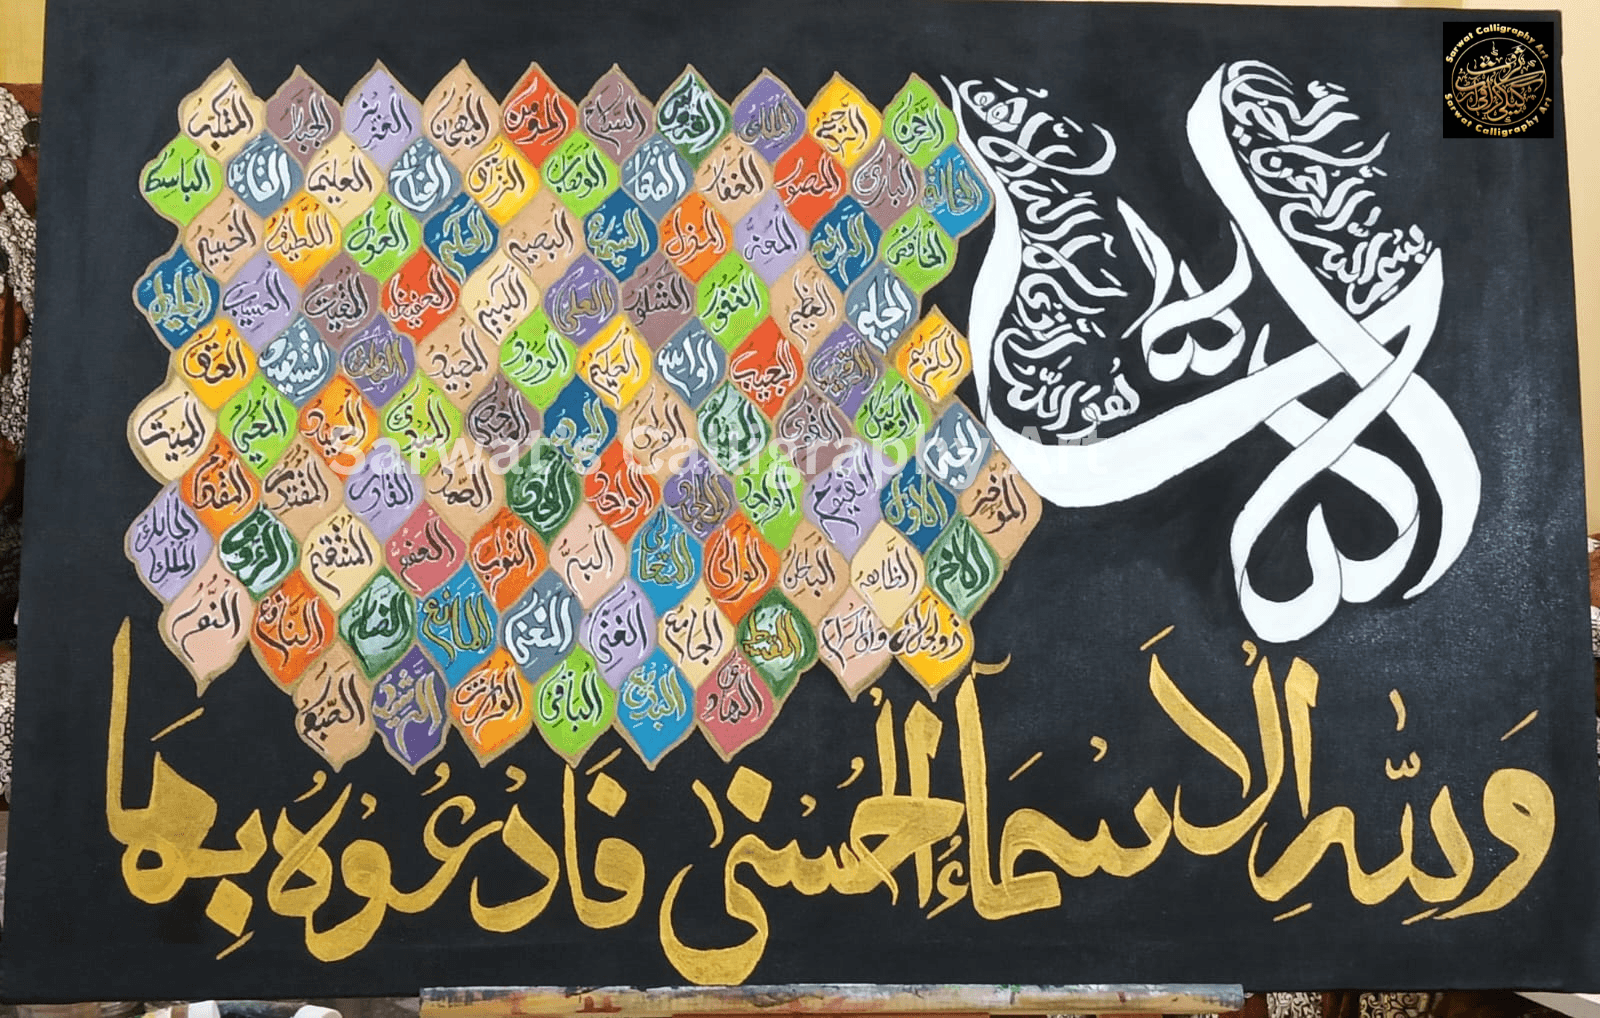 Sarwat Calligraphy Art
Sarwat Calligraphy Art
بسم الله الرحمن الرحيم
هو الله الذي لا اله الا هو
الرحمن الرحيم الملك القدوس السلام المؤمن المهيمن العزيز الجبار المتكبر
الخالق البارئ المصور الغفار القهار الوهاب الرزاق الفتاح العليم القابض الباسط
الخافض الرافع المعز المذل السميع البصير الحكم العدل اللطيف الخبير
الحليم العظيم الغفور الشكور العلي الكبير الحفيظ المقيت الحسيب الجليل
الكريم الرقيب المجيب الواسع الحكيم الودود المجيد الباعث الشهيد الحق
الوكيل القوي المتين الولي الحميد المحصي المبدئ المعيد المحيي المميت
الحي القيوم الواجد الماجد الواحد الاحد الصمد القادر المقتدر المقدم
المؤخر الاول
الاخر الظاهر الباطن الوالي المتعالي البر التواب العفو المنتقم الرؤوف مالك الملك
ذوالجلال والاكرام المقسط الجامع الغني المغني المانع الضار النافع النور
الهادي البديع الباقي الوارث الرشيد الصبور
وَلِلّٰهِ الْاَسْمَآءُ الْحُسْنٰى فَادْعُوْهُ بِهَا
Sarwat's Calligraphy Art